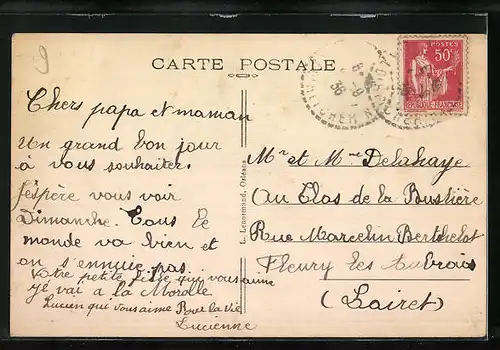 9
CARTE POSTALE
POSTES
50c
RÉPUBLIQUE FRANÇAISE
8-9
36
LOIR-ET-CHER
Chers papa et maman
Un grand bon jour
à vous souhaiter.
J'espère vous voir
Dimanche. Tous le
monde va bien et
on s'ennuie pas.
Votre petite fille qui vous aime
je vai à la
Lucien qui vous aime Pour la Vie
Lucienne
L. Lenormand, Orléans
Mr et Mme Delahaye
Au Clos de la Bustière
Rue Marcelin Berthelot
Fleury les Aubrais
(Loiret)